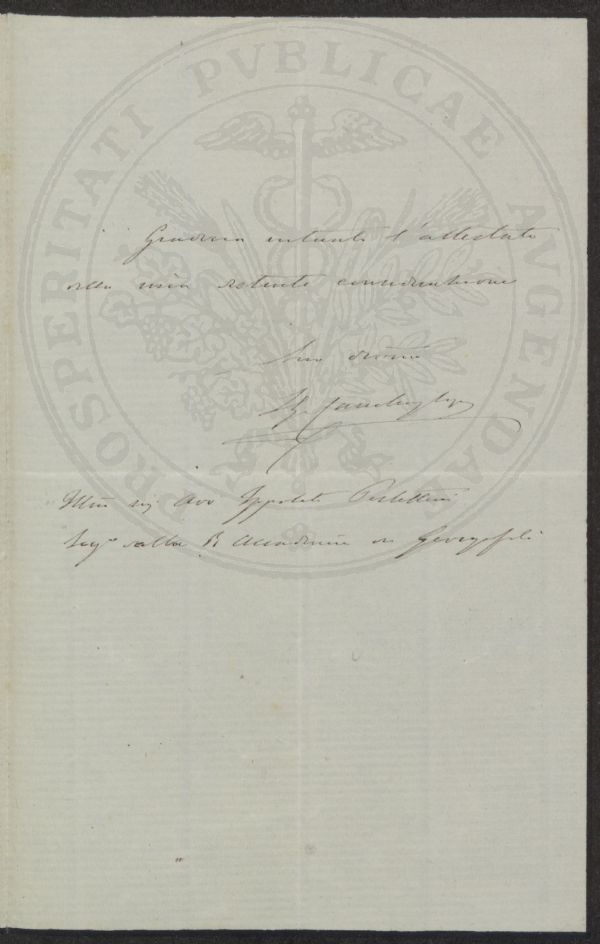 PROSPERITATI PVBLICAE AVGENDAE
Gradisca intanto l'attestato
della mia distinta considerazione
Suo
Illmo sig Avv Ippolito
Segro della R Accademia dei Georgofili